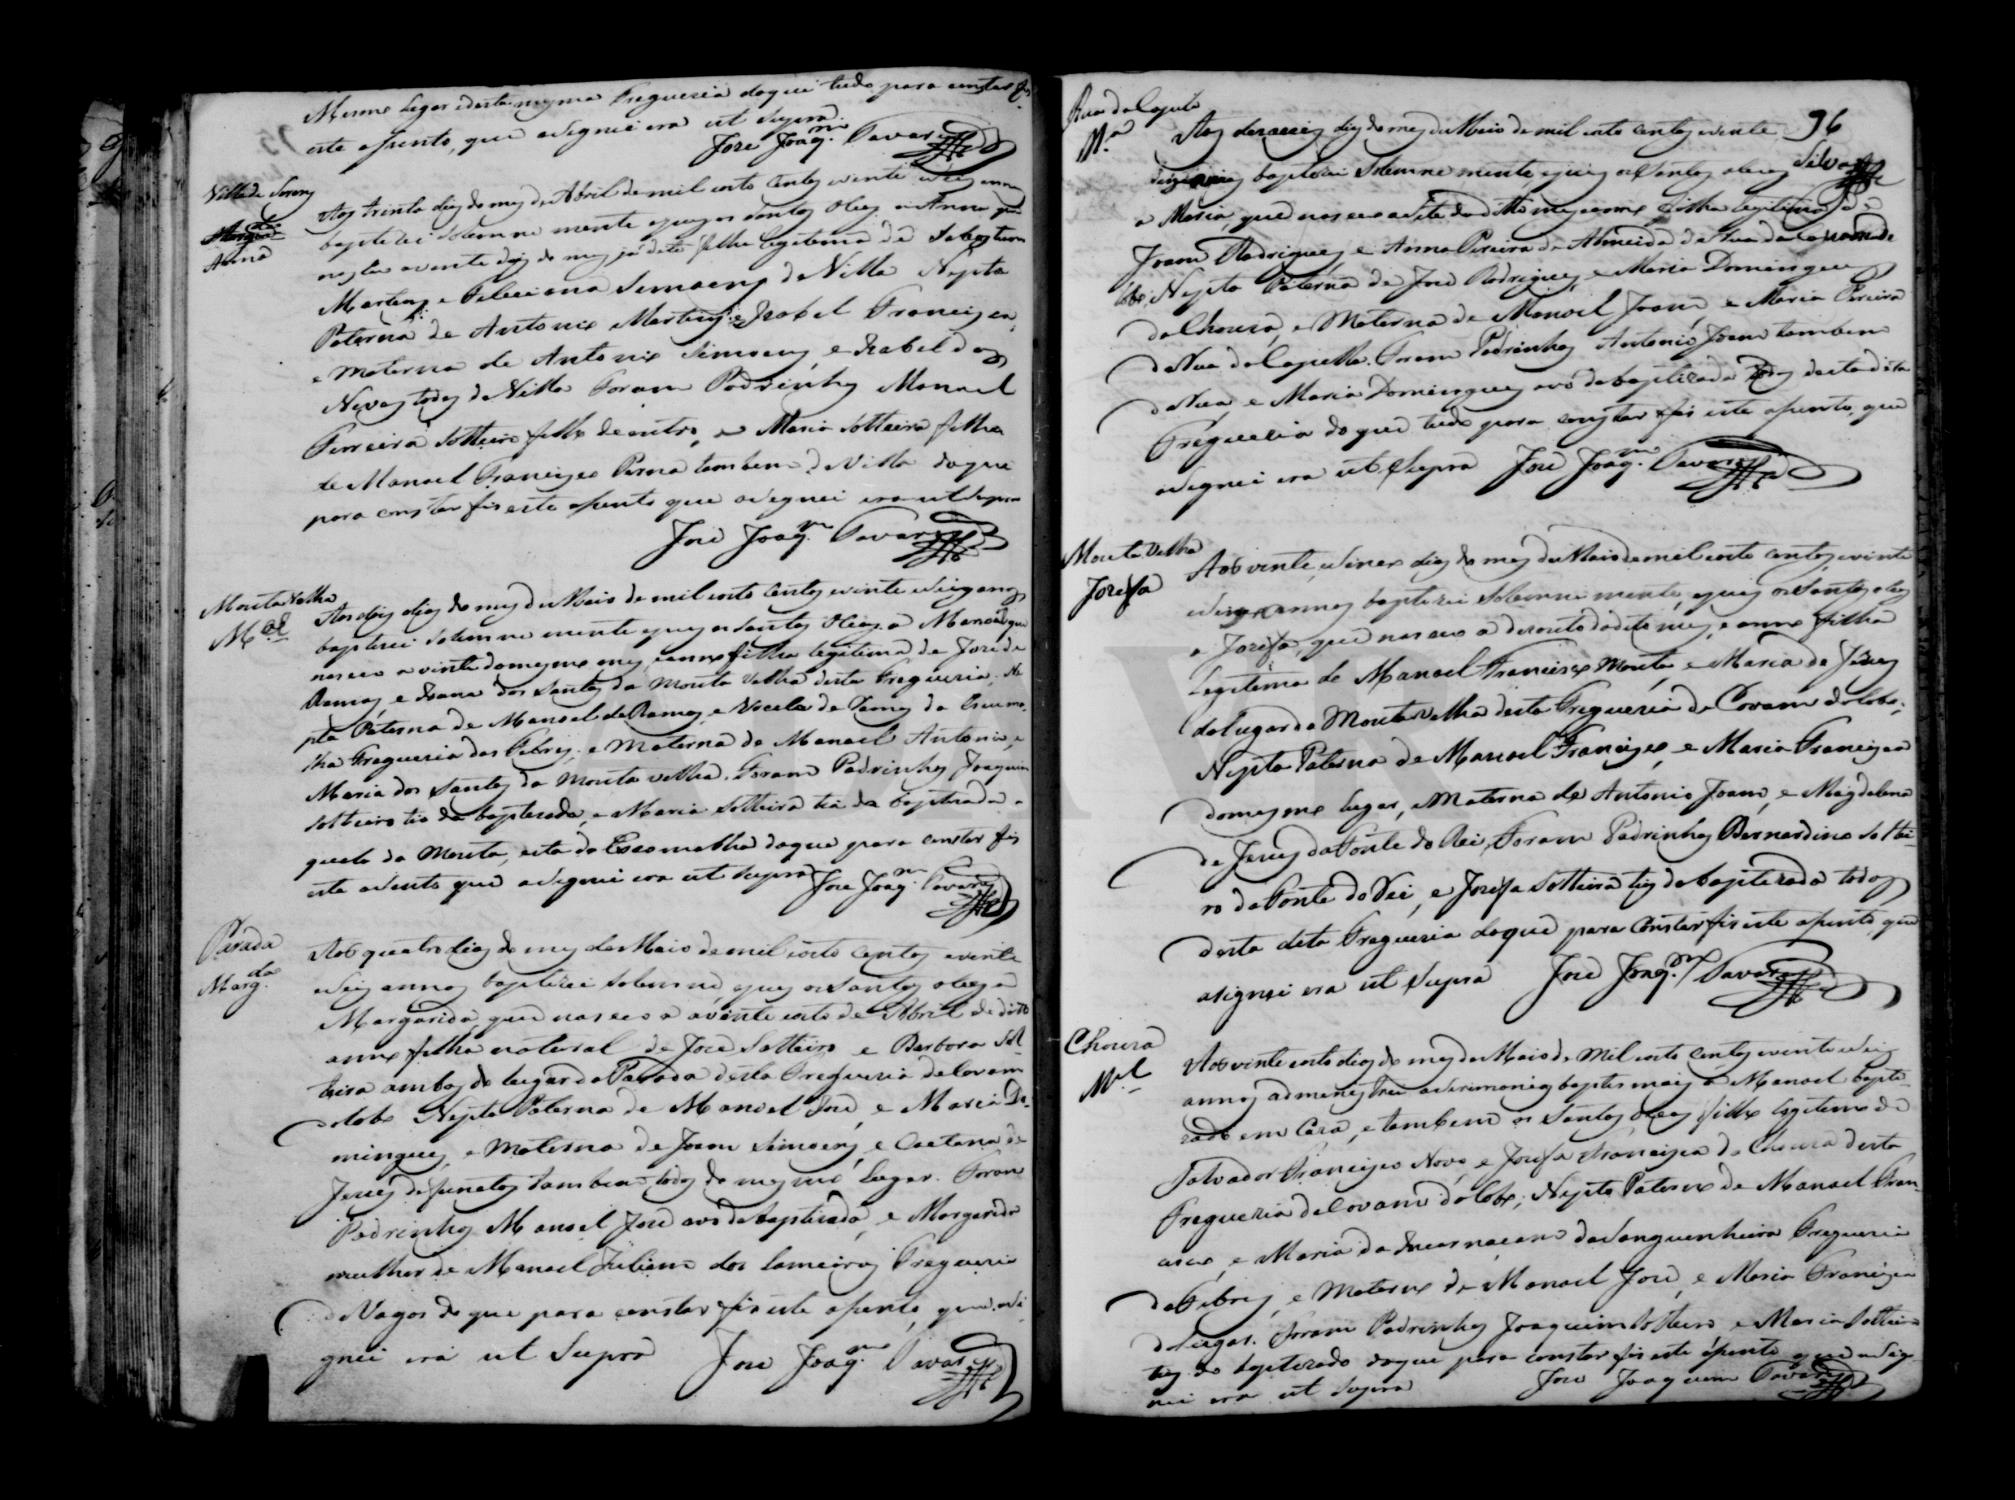 Mesmo lugar e desta mesma Freguezia doque tudo para constar fis
este asento, que asignei era ut Supra.
Joze Joaq.m Tavares
Villa de Soreng
Anna
Aos trinta dias do mes de Abril de mil oito centos e vinte e seis annos
baptizei solemne mente e pus os Santos Oleos a Anna que
nasceo a vinte dois do mes já dito filha legitima de Sebastiam
Martins e Feleciana Simoens da Villa Nepta
Paterna de Antonio Martins e Izabel Francisca,
e Materna de Antonio Simoens, e Izabel das
Neves todos da Villa Foram Padrinhos Manoel
Ferreira Solteiro filho de outro, e Maria Solteira filha
de Manoel Francisco Perna tambem da Villa doque
para constar fis este asento que asignei era ut Supra
Joze Joaq.m Tavares
Mouta Velha
M.el
Aos dois dias do mes de Maio de mil oito centos e vinte e seis annos
baptizei solemne mente e pus os Santos Oleos a Manoel que
nasceo a vinte do mesmo mes e anno filho legitimo de Joze de
Ramos, e Joana dos Santos da Mouta Velha desta Freguezia, Ne
pto Paterna de Manoel de Ramos, e de Lemos da Escuma
lha Freguezia das Febres, e Materna de Manoel Antonio, e
Maria dos Santos da Mouta velha. Foram Padrinhos Joaquim
Solteiro tio da baptizada, e Maria Solteira tia da baptizada a
quele da Mouta, esta da Escomalha doque para constar fis
este asento que asignei era ut Supra Joze Joaq.m Tavares
Parada
Marg.da
Aos quatro dias do mes de Maio de mil oito centos e vinte
e seis annos baptizei solemne, e pus os Santos oleos a
Margarida, que nasceo a vinte oito de Abril de dito
anno filha natural de Joze Solteiro e Barbora Sol
teira ambos do lugar da Parada desta Freguezia de Covam
do lobo Nepta Paterna de Manoel Joze, e Maria Do
mingues, e Materna de Joam Simoens, e Caetana de
Jesus defunctos tambem todos do mesmo lugar. Foram
Padrinhos Manoel Joze avo da baptizada, e Margarida
mulher de Manoel Juliam dos Lameiros Freguezia
de Vagos do que para constar fis este asento, que asi
gnei era ut Supra Joze Joaq.m Tavares
Rua da Capela
M.a
96
Silva
Aos dezaceis dias do mes de Maio de mil oito centos e vinte
e seis annos baptizei Solemne mente, e pus os Santos oleos
a Maria, que nasceo a sete do ditto mes e anno filha legitima de
Joam Rodrigues, e Anna Pereira de Almeida da Rua da
lobo; Nepta Paterna de Joze Rodrigues, e Maria Domingues
da Choura, e Materna de Manoel Joam e Maria Pereira
da Rua da Capella. Foram Padrinhos Antonio Joam tambem
da Rua, e Maria Domingues avó da baptizada todos desta dita
Freguezia do que tudo para constar fis este asento, que
asignei era ut Supra Joze Joaq.m Tavares
Mouta Velha
Jozefa
Aos vinte, e sinco dias do mes de Maio de mil oito centos, e vinte
e seis annos baptizei Solemne mente, e pus os Santos oleos
a Jozefa, que nasceo a dezouto do dito mes, e anno filha
legitima de Manoel Francisco Mouta, e Maria de Jesus
do lugar da Mouta velha desta Freguezia de Covam do lobo;
Nepta Paterna de Manoel Francisco, e Maria Francisca
do mesmo lugar, e Materna de Antonio Joam, e Magdalena
de Jesus da Fonte do Rei, Foram Padrinhos Bernardino Soltei
ro da Fonte do Rei, e Jozefa Solteira tios da baptizada todos
desta dita Freguezia doque para constar fis este asento, que
asignei era ut Supra Joze Joaq.m Tavares
Choura
M.el
Aos vinte oito dias do mes de Maio de mil oito centos e vinte e seis
annos admenistrei as serimonias baptismais a Manoel bapti
zado em Caza, e tambem os Santos oleos filho legitimo de
Salvador Francisco Novo, e Jozefa Francisca da Choura desta
Freguezia de Covam do lobo; Nepto Paterno de Manoel Fran
cisco, e Maria da Encarnaçam da Sanguenheira Freguezia
de Febres, e Materno de Manoel Joze, e Maria Francisca
do lugar. Foram Padrinhos Joaquim Solteiro e Maria Solteira
tios do baptizado doque para constar fis este asento que asig
nei era ut Supra Joze Joaquim Tavares